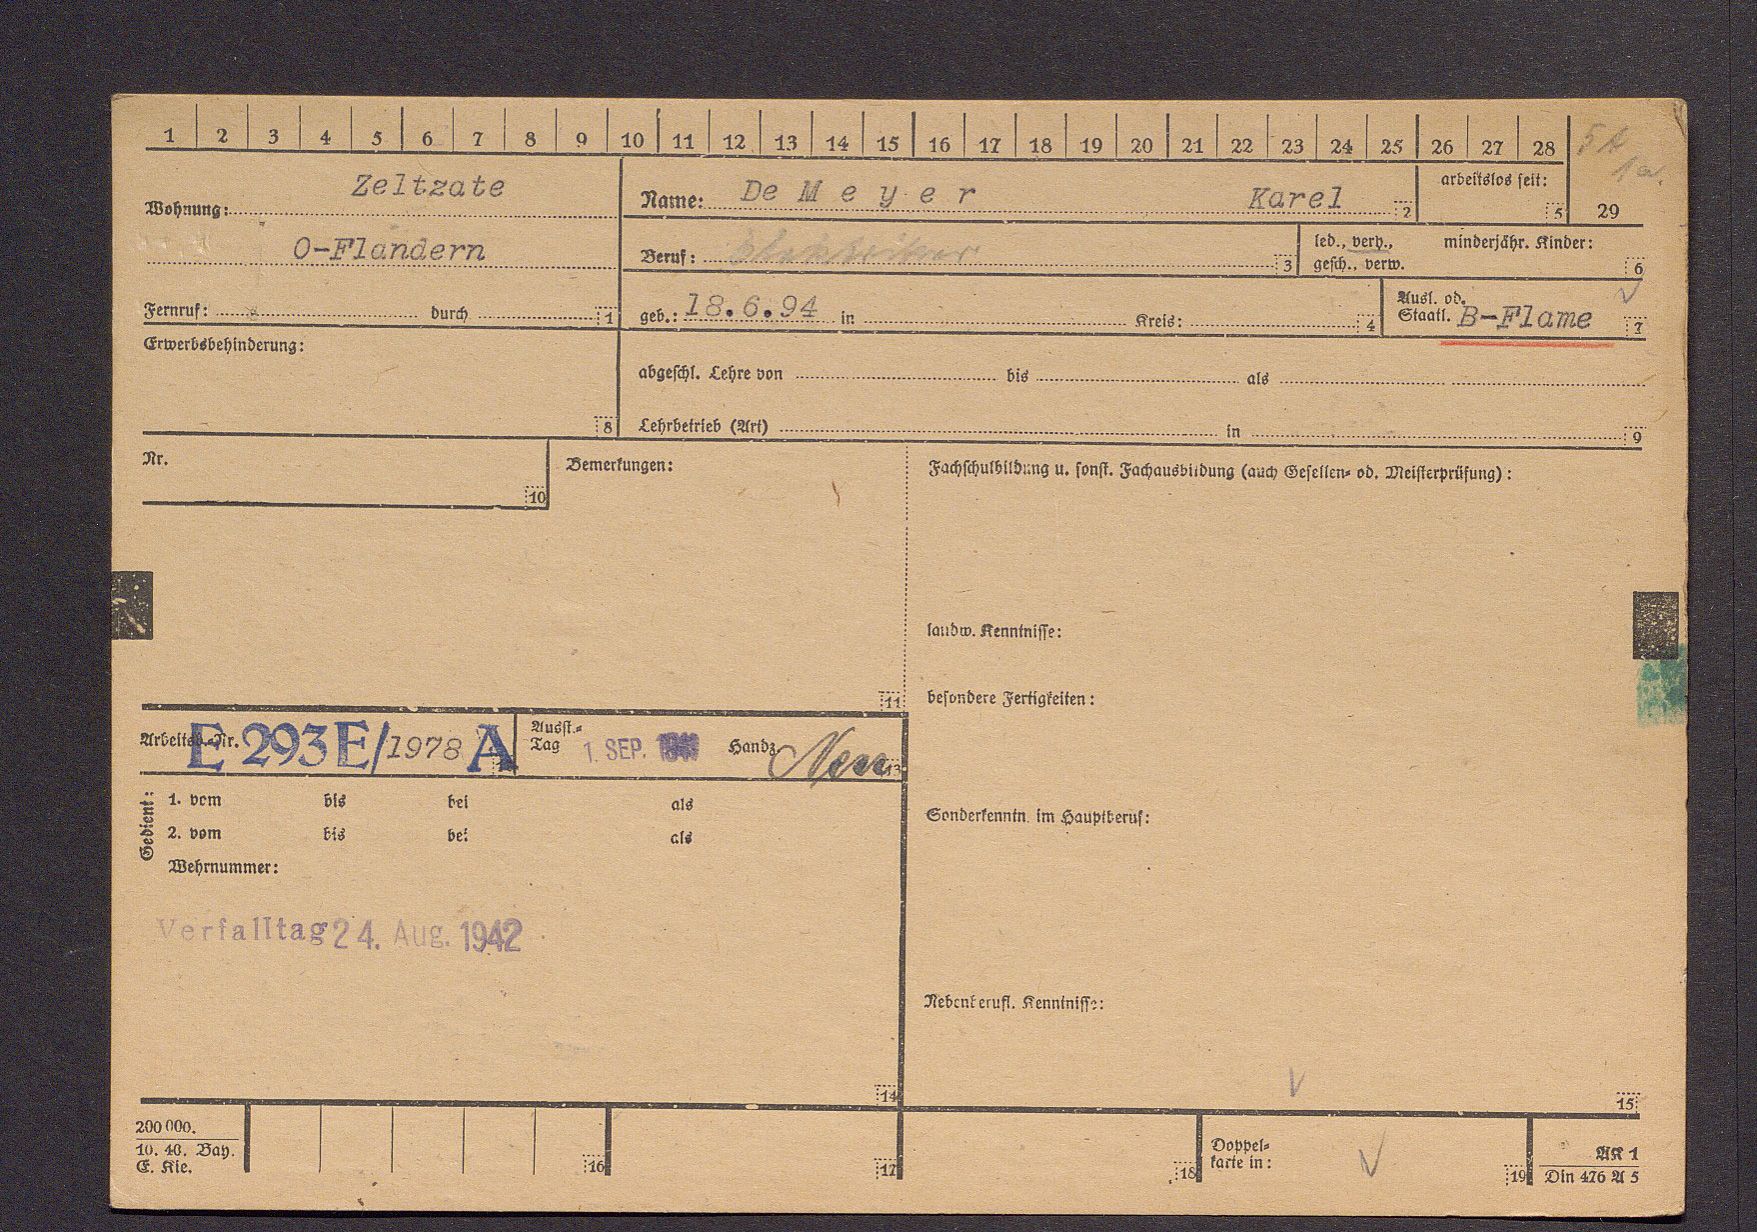 1 2 3 4 5 6 7 8 9 10 11 12 13 14 15 16 17 18 19 20 21 22 23 24 25 26 27 28
5 A
1a.
29
Wohnung: Zeltzate
O-Flandern
Fernruf: durch 1
Name: De M e y e r Karel 2
arbeitslos seit: 5
Beruf: 3
led., verh., gesch., verw.
minderjähr. Kinder: 6
geb.: 18.6.94 in Kreis: 4
Ausl. od. Staatl. B-Flame 7
Erwerbsbehinderung: 8
abgeschl. Lehre von bis als
Lehrbetrieb (Art) in 9
Nr. 10
Bemerkungen: 11
Fachschulbildung u. sonst. Fachausbildung (auch Gesellen- od. Meisterprüfung):
landw. Kenntnisse:
besondere Fertigkeiten:
Arbeitsb.-Nr. E 293 E/1978 A
Ausst.-Tag 1. SEP. Handz. 13
Gedient: 1. vom bis bei als
2. vom bis bei als
Wehrnummer:
Verfalltag 24. Aug. 1942
14
Sonderkenntn. im Hauptberuf:
Nebenberufl. Kenntnisse:
15
200 000.
10. 40. Bay.
E. Kie.
16 17 18
Doppelkarte in: 19
AK 1
Din 476 A 5